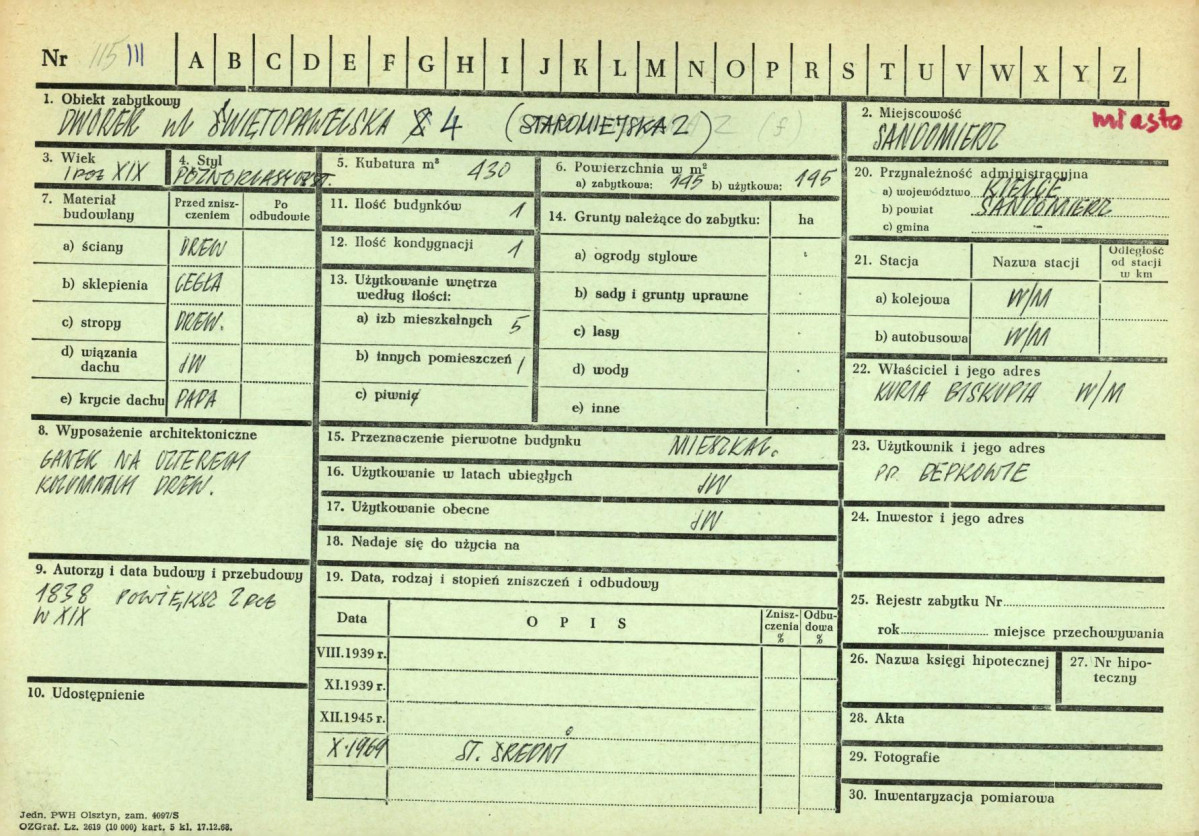 Nr 115 III A B C D E F G H I J K L M N O P R S T U V W X Y Z
1. Obiekt zabytkowy
DWOREK ul ŚWIĘTOPAWELSKA 4 (STAROMIEJSKA 2)
2. Miejscowość
miasto
SANDOMIERZ
3. Wiek
I POŁ XIX
4. Styl
PÓŹNOKLASYCYST.
5. Kubatura m³ 430
6. Powierzchnia w m²
a) zabytkowa: 195 b) użytkowa: 195
20. Przynależność administracyjna
a) województwo KIELCE
b) powiat SANDOMIERZ
c) gmina -
7. Materiał budowlany
Przed zniszczeniem
Po odbudowie
a) ściany DREW
b) sklepienia CEGŁA
c) stropy DREW.
d) wiązania dachu JW
e) krycie dachu PAPA
11. Ilość budynków 1
12. Ilość kondygnacji 1
13. Użytkowanie wnętrza
według ilości:
a) izb mieszkalnych 5
b) innych pomieszczeń 1
c) piwnic
14. Grunty należące do zabytku: ha
a) ogrody stylowe
b) sady i grunty uprawne
c) lasy
d) wody
e) inne
21. Stacja
Nazwa stacji
Odległość
od stacji
w km
a) kolejowa W/M
b) autobusowa W/M
22. Właściciel i jego adres
KURIA BISKUPIA W/M
8. Wyposażenie architektoniczne
GANEK NA CZTERECH
KOLUMNACH DREW.
15. Przeznaczenie pierwotne budynku MIESZKAL.
16. Użytkowanie w latach ubiegłych JW
17. Użytkowanie obecne JW
18. Nadaje się do użycia na
23. Użytkownik i jego adres
PP. BEPKOWIE
24. Inwestor i jego adres
9. Autorzy i data budowy i przebudowy
1838 POWIĘKSZ 2 POŁ
W XIX
19. Data, rodzaj i stopień zniszczeń i odbudowy
Data
OPIS
Zniszczenia %
Odbudowa %
VIII.1939 r.
XI.1939 r.
XII.1945 r.
X.1969 ST. ŚREDNI
25. Rejestr zabytku Nr
rok miejsce przechowywania
26. Nazwa księgi hipotecznej
27. Nr hipoteczny
28. Akta
29. Fotografie
30. Inwentaryzacja pomiarowa
10. Udostępnienie
Jedn. PWH Olsztyn, zam. 4097/S
OZGraf. Lz. 2619 (10 000) kart. 5 kl. 17.12.68.